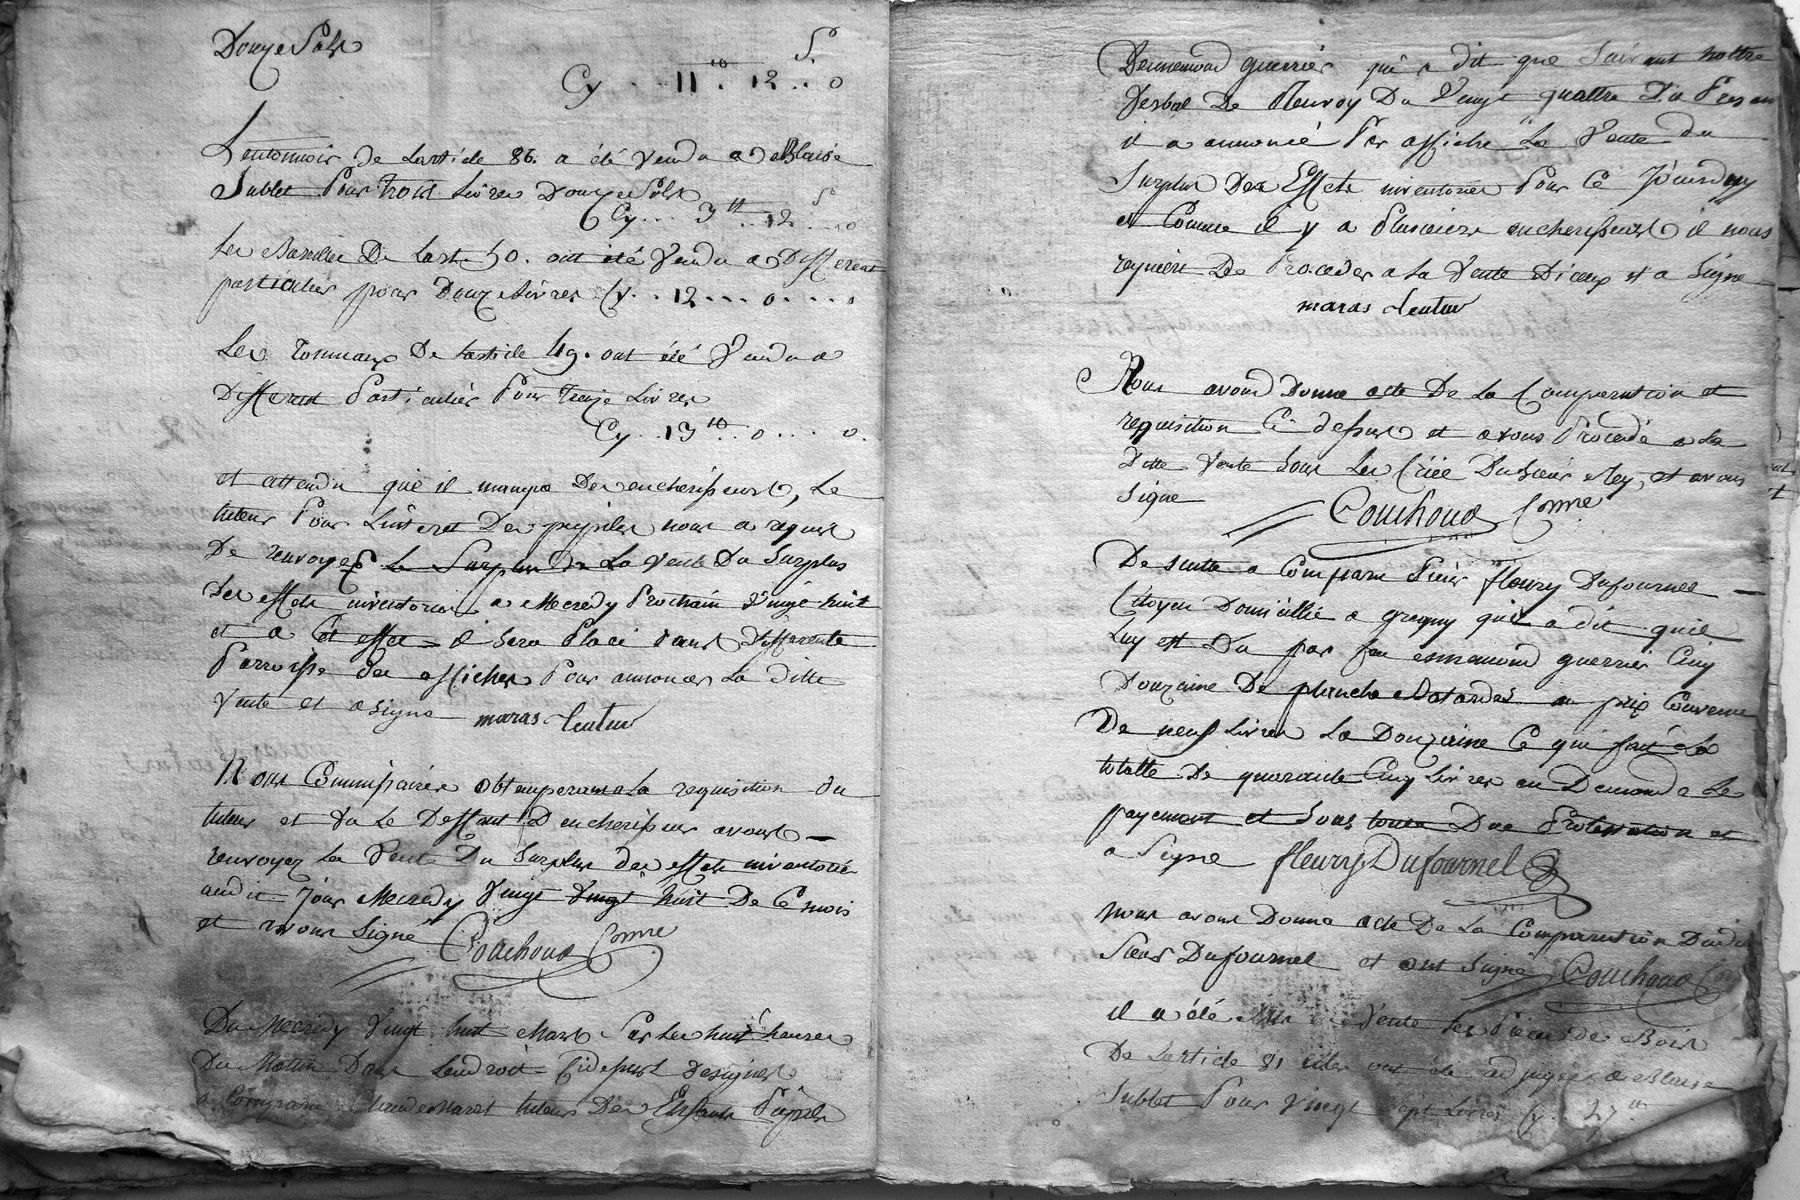 Douze Sols
S
Cy . . . 11 tt . 12 . . 0
Lentonnoir de Larticle 86. a été vendu a deBlaise
Sublet Pour trois Livres Douze Sols
S
Cy . . . 3 tt . . 12 . . . 0
Les De Lart. 50. ont été vendu a Different
particulier pour Douze Livres Cy . . 12 . . . 0 . . . . 0
Les Tonneaux De Larticle 49. ont été Vendu a
Different Particulier Pour Treize Livres
Cy . . 13 tt . . 0 . . . . 0.
et attendu qu'il manque Des encherisseurs, Le
tuteur Pour Linteret Des pupiles nous a requis
De renvoyer Le Surplus De La vente Du Surplus
Des effets inventorié a Mecredy Prochain vingt huit
et a Cet effet = il Sera Placé dans Differente
Parroisse des affiches Pour annoncer La ditte
vente et a Signe maras tuteur
Nous Commissaires obtemperant a La requisition du
tuteur et vu Le Deffaut D'encherisseur avons —
renvoyez La Vente Du Surplus des effets inventorié
audit Jour Mecredy Vingt Vingt huit De Ce mois
et avons Signé Couchoud Comre
Du Mecredy Vingt huit Mars Sur Les huit heures
Du Matin Dans Lendroit = Cidessus Designés
a Comparu Claude Maras tuteur Des Enfants Pupiles
Dennemond guerrier qui a dit que Suivant nottre
Verbal De Renvoy Du Vingt quattre Du Presen
il a annoncé Par affiche La Vente du
Surplus Des Effets inventoriés Pour Ce Jourduy
et Comme il y a Plusieurs encherisseurs il nous
requiert De Proceder a La Vente Diceux et a Signe
maras tuteur
Nous avons Donne acte De La Comparution et
requisition Ci dessus et avons Procédé a La
Ditte Vente Sous Les Criée Du Sieur Rey, et avons
Signe Couchoud Comre
De Suitte a Comparu Sieur fleury Dufournel —
Citoyen Domicillié a gregny qui a dit qu'il
Luy est Du par feu ennemond guerrier Cinq
Douzaine De planche Batardes au prix Convenu
De neuf Livres La Douzaine Ce qui fait La
totalle De quarante Cinq Livres en Demande Le
payement et Sous toute Due Protestation et
a Signe fleury Dufournel
Nous avons Donne acte De La Comparution Dudit
Sieur Dufournel et ont Signé Couchoud
il a été Mis en Vente Les Pièces De Bois
De Larticle 81 elles ont été adjugés a Blaise
Sublet Pour Vingt Sept Livres Cy . . 27 tt